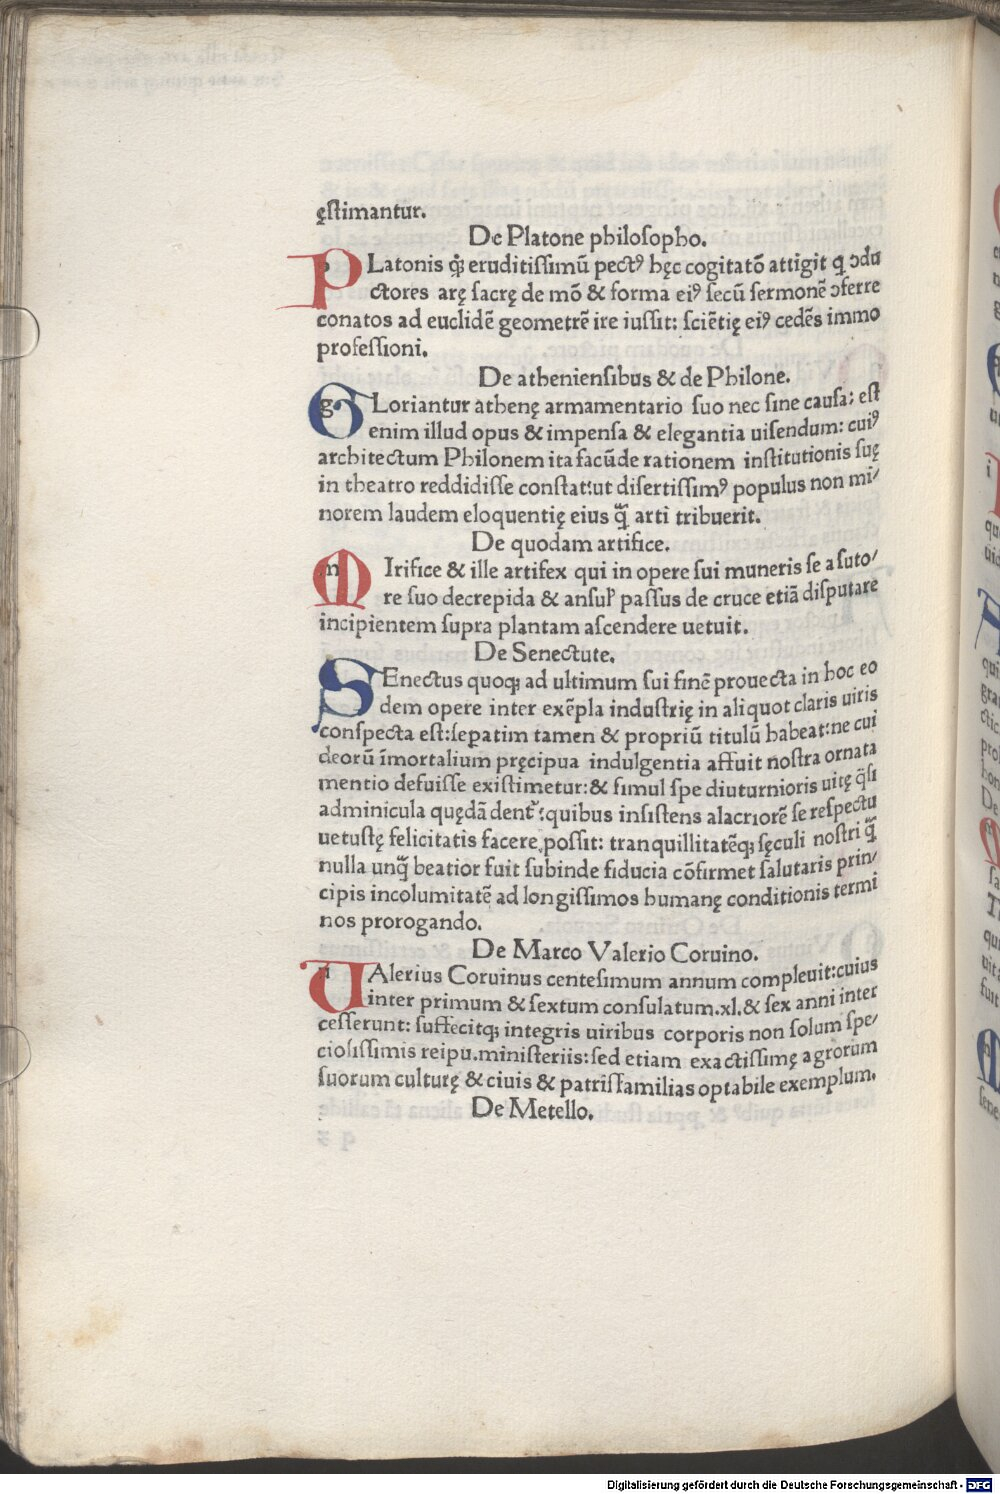 ęſtimantur.
De Platone philoſopho.
PLatonis ꝙͥ eruditiſſimū pectꝰ hęc cogitatō attigit q ɔdu
ctores arę ſacrę de mō & forma eiꝰ ſecū ſermonē ɔferre
conatos ad euclidē geometrē ire iuſſit: ſciētię eiꝰ cedēs immo
profeſſioni.
De athenienſibus & de Philone.
GLoriantur athenę armamentario ſuo nec ſine cauſa: eſt
enim illud opus & impenſa & elegantia uiſendum: cuiꝰ
architectum Philonem ita facūde rationem inſtitutionis ſuę
in theatro reddidiſſe conſtat:ut diſertiſſimꝰ populus non mi/
norem laudem eloquentię eius q̄ arti tribuerit.
De quodam artifice.
MIrifice & ille artifex qui in opere ſui muneris ſe a ſuto/
re ſuo decrepida & anſuƚ paſſus de cruce etiā diſputare
incipientem ſupra plantam aſcendere uetuit.
De Senectute.
SEnectus quoqꝫ ad ultimum ſui finē prouecta in hoc eo
dem opere inter exēpla induſtrię in aliquot claris uiris
conſpecta eſt:ſepatim tamen & propriū titulū habeat:ne cui
deorū īmortalium pręcipua indulgentia affuit noſtra ornata
mentio defuiſſe exiſtimetur:& ſimul ſpe diuturnioris uitę q̄ſi
adminicula quędā dent᷑:quibus inſiſtens alacriorē ſe reſpectu
uetuſtę felicitatis facere poſſit: tranquillitatēqꝫ ſęculi noſtri q̄
nulla unq̄ beatior fuit ſubinde fiducia cōfirmet ſalutaris prin/
cipis incolumitatē ad longiſſimos humanę conditionis termi
nos prorogando.
De Marco Valerio Coruino.
VAlerius Coruinus centeſimum annum compleuit:cuius
inter primum & ſextum conſulatum.xl.& ſex anni inter
ceſſerunt: ſuffecitqꝫ integris uiribus corporis non ſolum ſpe/
cioſiſſimis reipu.miniſteriis:ſed etiam exactiſſimę agrorum
ſuorum culturę & ciuis & patriſfamilias optabile exemplum.
De Metello.
Digitalisierung gefördert durch die Deutsche Forschungsgemeinschaft - DFG